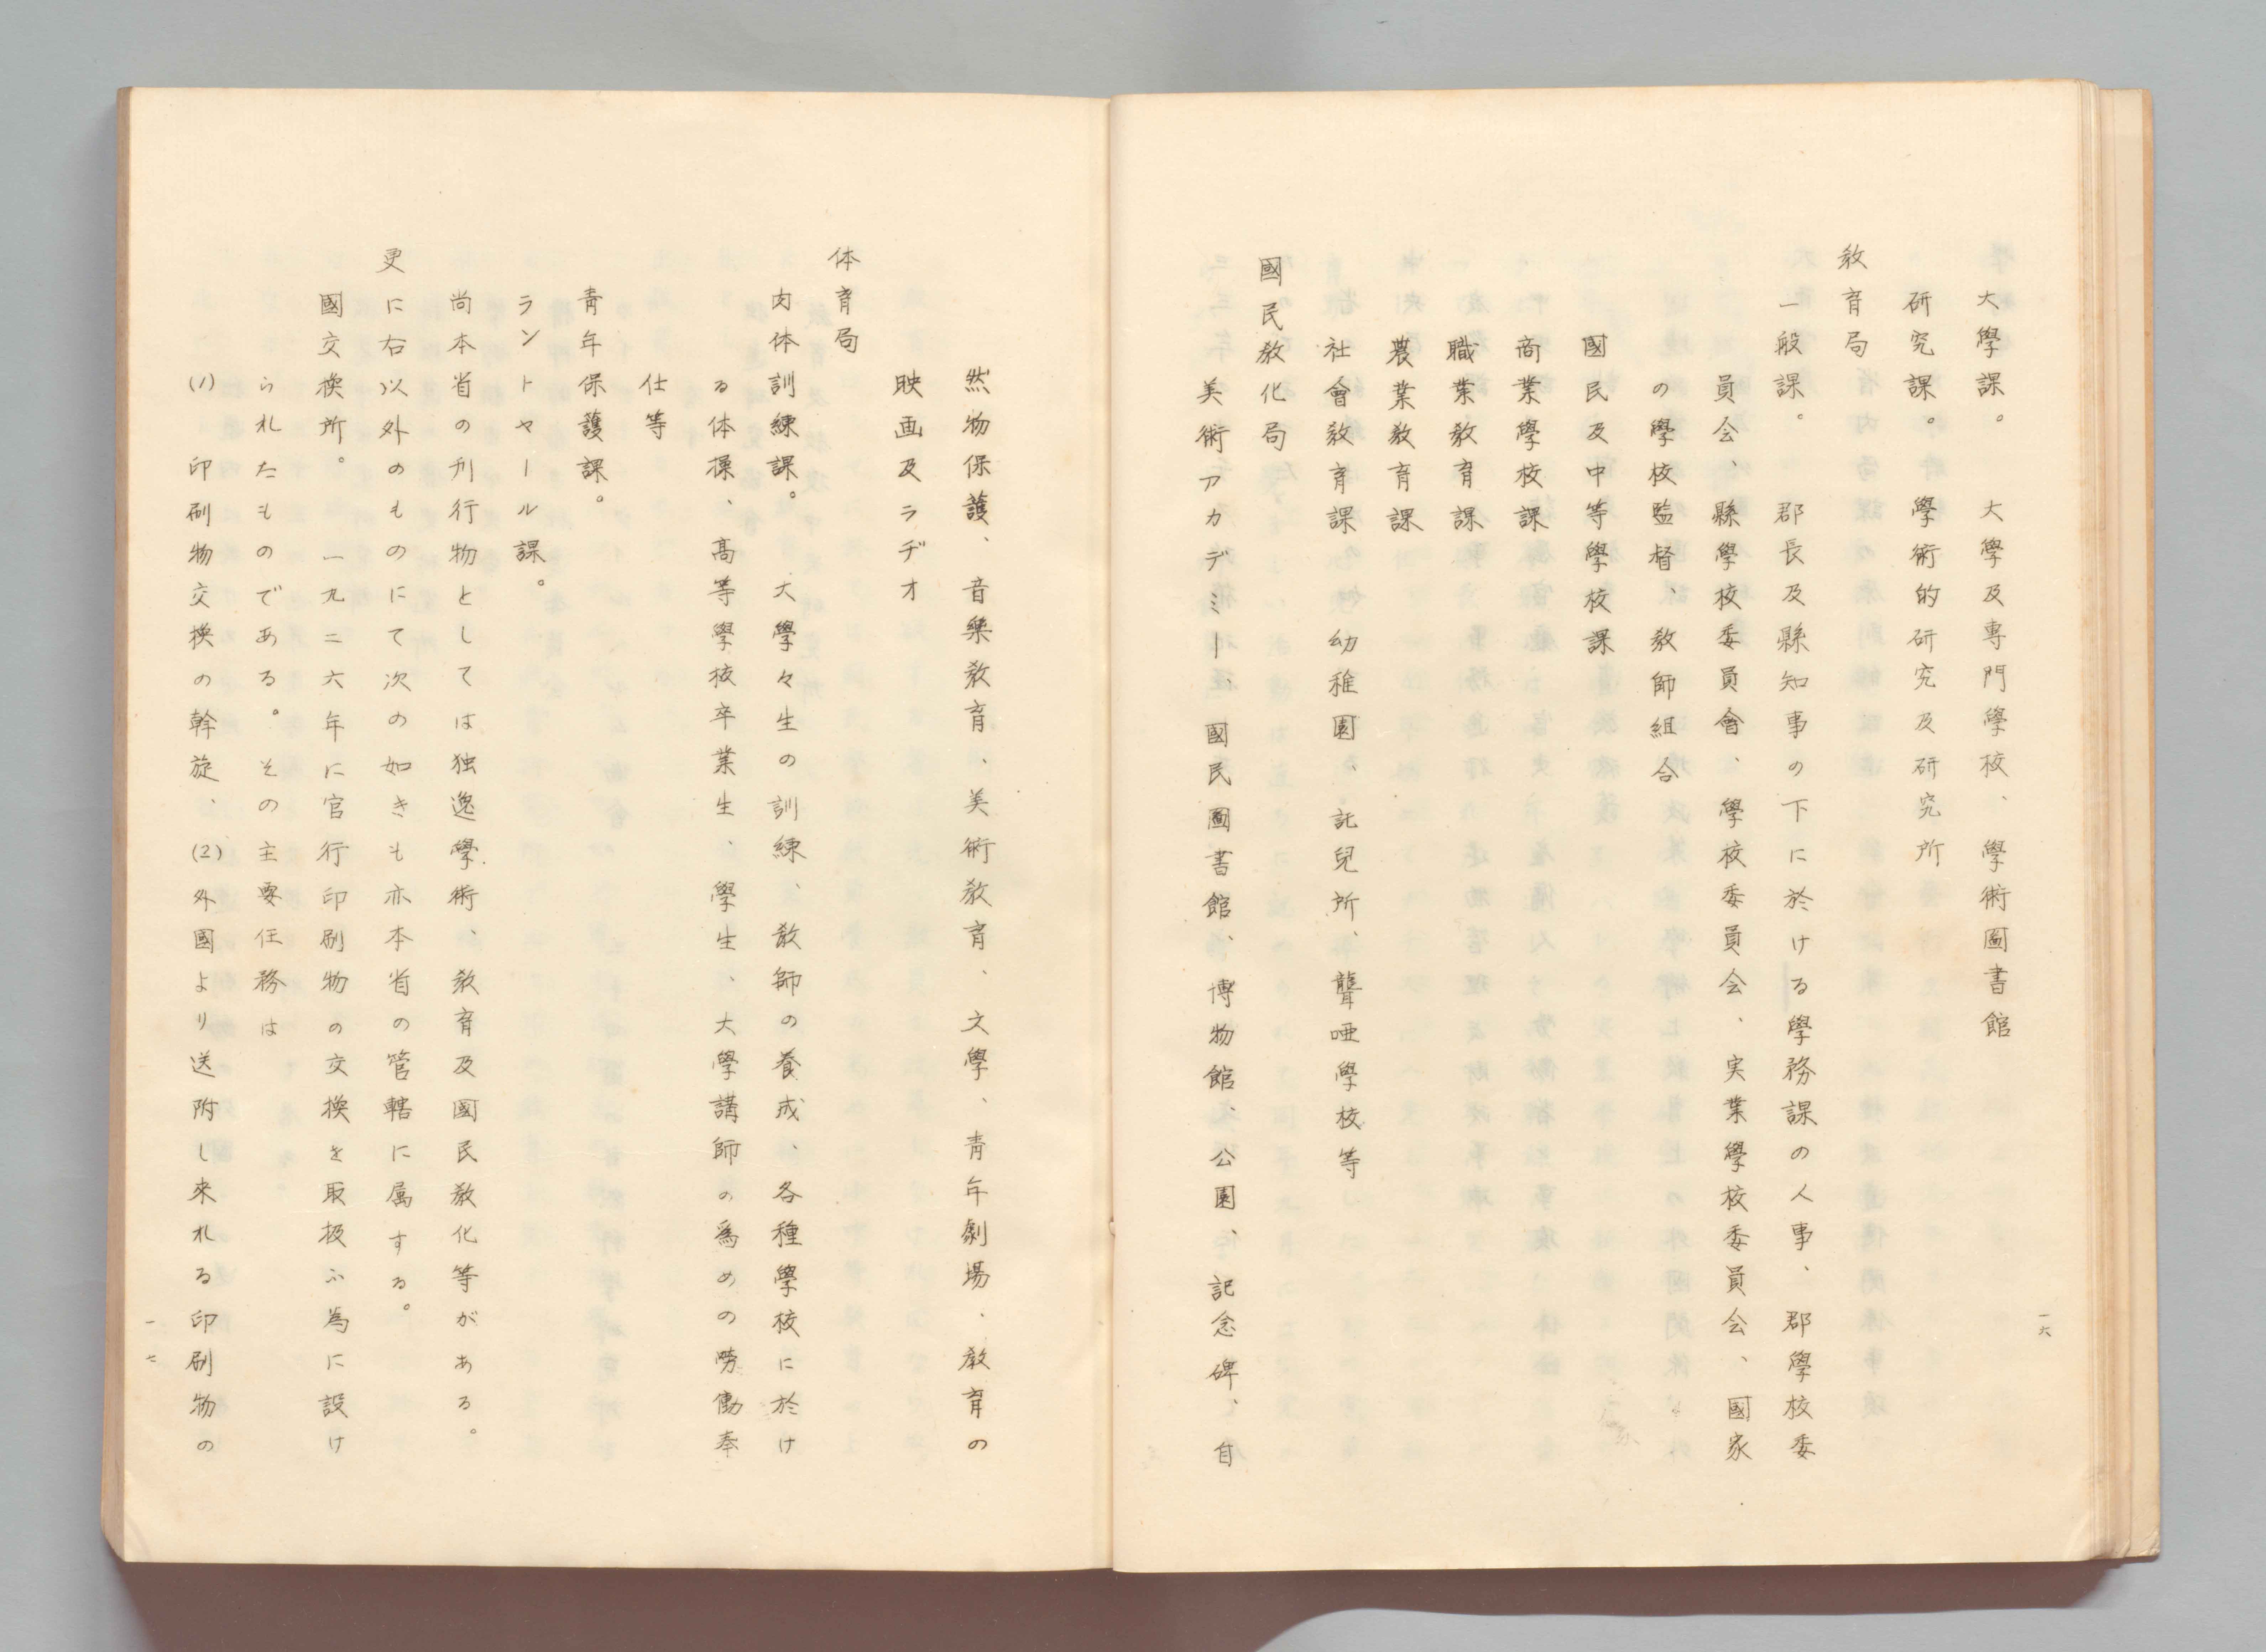 大學課。　大學及專門學校、學術圖書館
研究課。　學術的研究及研究所
教育局
一般課。　郡長及縣知事の下に於ける學務課の人事、郡學校委
員会、縣學校委員會、學校委員会、実業學校委員会、國家
の學校監督、教師組合
國民及中等學校課
商業學校課
職業教育課
農業教育課
社會教育課　幼稚園、託兒所、聾唖學校等
國民教化局
美術アカデミー、國民圖書館、博物館、公園、記念碑、自
一六
然物保護、音樂教育、美術教育、文學、青年劇場、教育の
映画及ラヂオ
体育局
肉体訓練課。　大學々生の訓練、教師の養成、各種學校に於け
る体操、高等學校卒業生、學生、大學講師の爲めの勞働奉
仕等
青年保護課。
ラントヤール課。
尚本省の刋行物としては独逸學術、教育及國民教化等がある。
更に右以外のものにて次の如きも亦本省の管轄に属する。
國交換所。　一九二六年に官行印刷物の交換を取扱ふ為に設け
られたものである。その主要任務は
(1)　印刷物交換の幹旋、(2)外國より送附し來れる印刷物の
一七